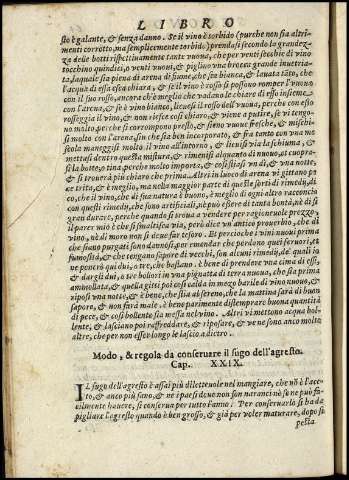 LIBRO
sto è galante, & senza danno. Se il vino è torbido (purche non sia altri-
menti corrotto, ma semplicemente torbido) prendasi secondo la grandez-
za delle botti rispettiuamente tante vuoua, che per venti secchie di vino
tocchino quindici, o venti vuoui, & piglino vna brocca grande inuetria-
ta, laquale sia piena di arena di fiume, che sia bianca, & lauata tãto, che
l'acqua di essa esca chiara, & se il vino è rosso si possono romper l'vuoua
con il suo rosso, ancora ch'è meglio che vadano le chiare di esso insieme
con l'arena, & se è vino bianco, lieuesi il rosso dell'vuoua, perche con esso
rosseggia il vino, & non riesce chiaro, & viene a putire, se vi tengo-
no molto, perche si corrompono presto, & sieno vuoue fresche, & mischi-
si molto con l'arena, sin che sia ben incorporato, & fra tanto con vna me
scola maneggisi molto il vino all'intorno, & lieuisi via la schiuma, &
mettasi dentro questa mistura, & rimenisi alquanto di nuouo, et cuopra-
si la botte, o tina, perche molto importa, & così stiasi vn dì, & vna notte,
& si trouerà più chiaro che prima. Altri in luogo di arena vi gittano pi
ce trita, & è meglio, ma nella maggior parte di queste sorti di rimedij, di
co, che il vino, che di sua natura è buono, è meglio di ogni altro racconcio
con questi rimedij, che sono artificiati, nè può essere di tanta bontà, nè di sì
gran durare, perche quando si troua a vendere per ragioneuole prezzo,
il parer mio è che si smaltisca via, però dice vn antico prouerbio, che di
vino, nè di moro non dèi far tesoro. Et percioche i vini nuoui prima
che siano purgati sono dannosi, per emendar che perdano quei feruori, et
fumosità, & che tengano sapore di vecchi, son alcuni rimedij, de' quali io
ne ponerò qui duo, o tre, che bastano. è bene di prendere vna cima di essi,
& dargli duo, o tre bollori in vna pignatta di terra nuoua, che sia prima
ammollata, & quella gittisi poi così calda in mezo barile di vino nuouo, &
riposi vna notte, & è bene, che stia al sereno, che la mattina sarà di buon
sapore, & non farà male. è bene parimente distemprare buona quantità
di pece, & così bollente sia messa nel vino. Altri vi mettono acqua bol-
lente, & lasciano poi raffreddare, & riposare, & ve ne sono anco molte
altre, che per non esser longo le lascio a dietro.
Modo, & regola da conseruare il sugo dell'agresto.
Cap. XXIX.
IL sugo dell'agresto è assai più diletteuole nel mangiare, che nõ è l'ace-
to, & anco più sano, & ne i paesi doue non son naranci nõ se ne può fa-
cilmente hauere, si conserua per tutto l'anno. Per conseruarlo si ha da
pigliare l'agresto quando è ben grosso, & già per voler maturare, dopo sia
pesta